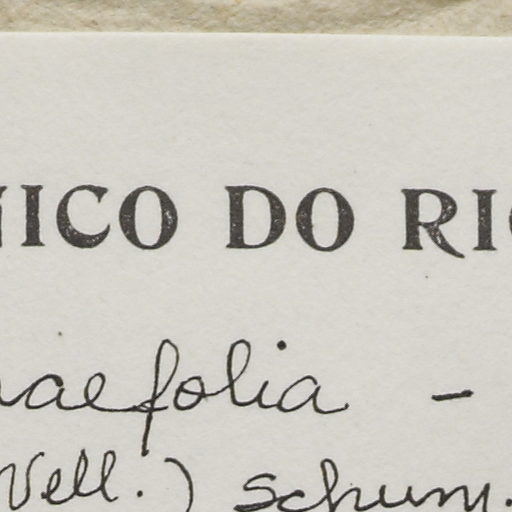 NICO DO RIO
aefolia -
Vell.) Schum.